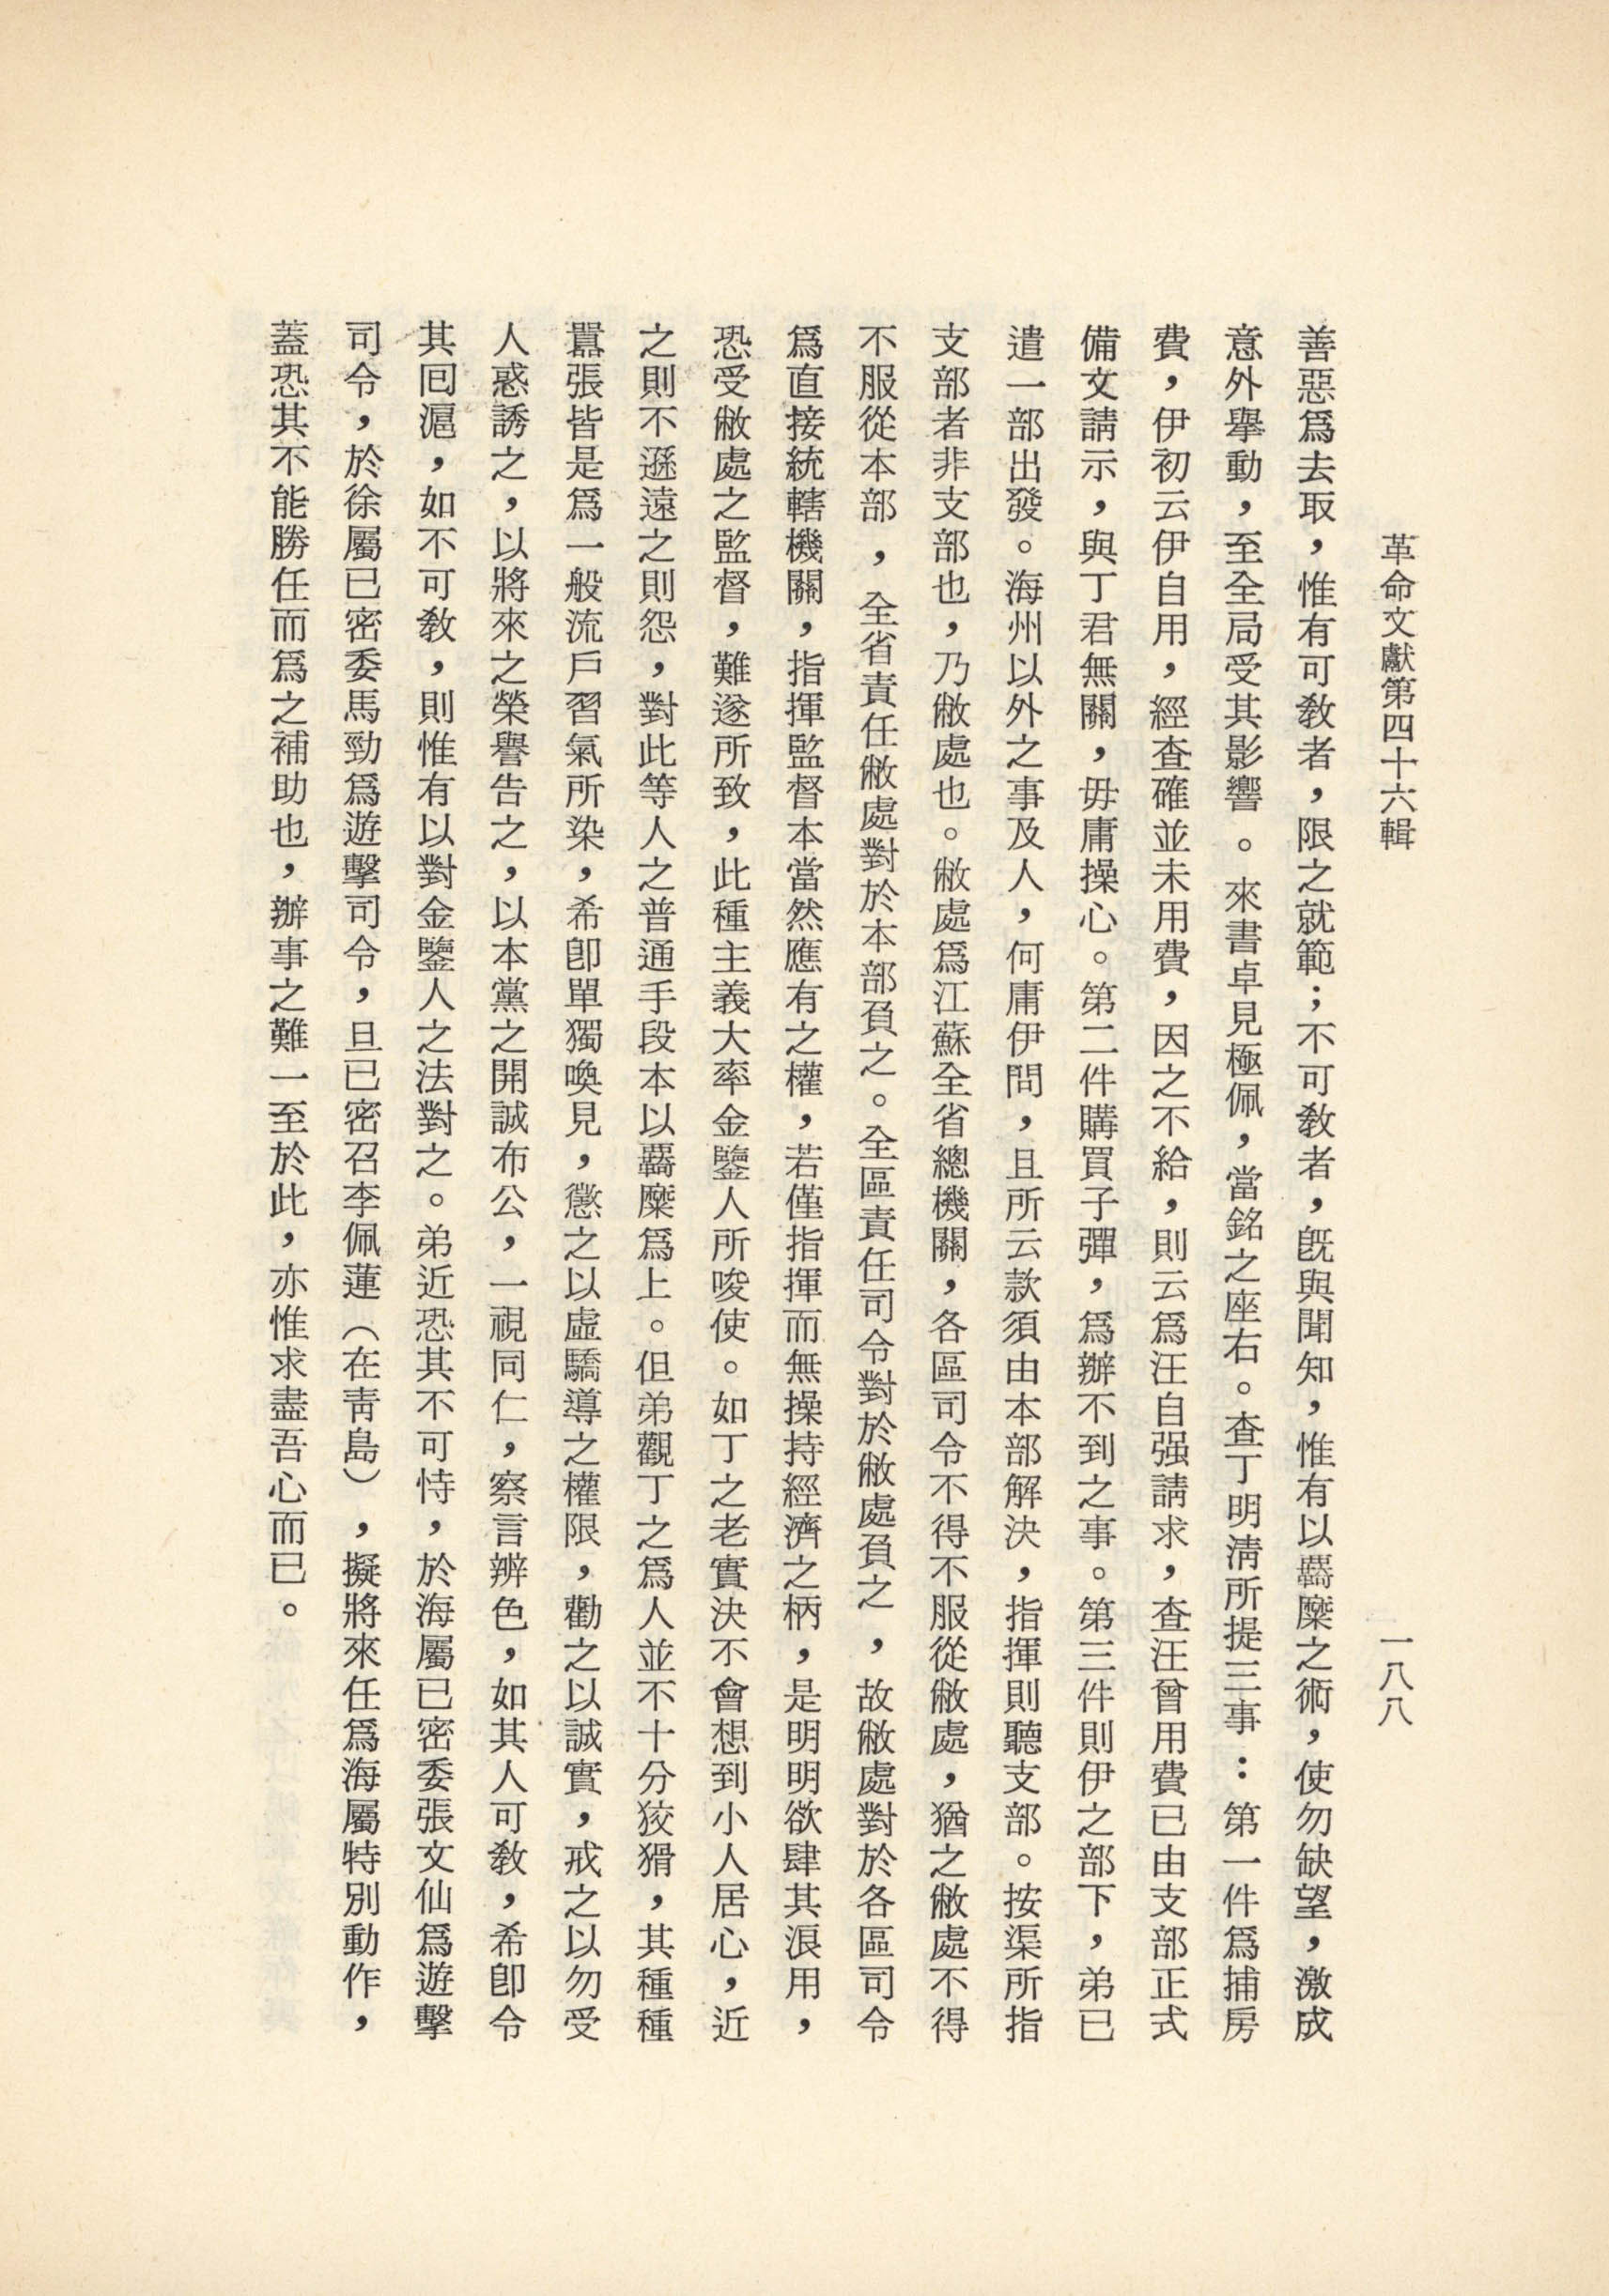 革命文獻第四十六輯
一八八
善惡爲去取，惟有可敎者，限之就範；不可敎者，旣與聞知，惟有以羈糜之術，使勿缺望，激成
意外擧動，至全局受其影響。來書卓見極佩，當銘之座右。查丁明淸所提三事：第一件爲捕房
費，伊初云伊自用，經查確並未用費，因之不給，則云爲汪自强請求，查汪曾用費已由支部正式
備文請示，與丁君無關，毋庸操心。第二件購買子彈，爲辦不到之事。第三件則伊之部下，弟已
遣一部出發。海州以外之事及人，何庸伊問，且所云款須由本部解決，指揮則聽支部。按渠所指
支部者非支部也，乃敝處也。敝處爲江蘇全省總機關，各區司令不得不服從敝處，猶之敝處不得
不服從本部，全省責任敝處對於本部負之。全區責任司令對於敝處負之，故敝處對於各區司令
爲直接統轄機關，指揮監督本當然應有之權，若僅指揮而無操持經濟之柄，是明明欲肆其浪用，
恐受敝處之監督，難遂所致，此種主義大率金鑒人所唆使。如丁之老實決不會想到小人居心，近
之則不遜遠之則怨，對此等人之普通手段本以羈糜爲上。但弟觀丁之爲人並不十分狡猾，其種種
囂張皆是爲一般流戶習氣所染，希卽單獨喚見，懲之以虛驕導之權限，勸之以誠實，戒之以勿受
人惑誘之，以將來之榮譽告之，以本黨之開誠布公，一視同仁，察言辨色，如其人可敎，希卽令
其囘滬，如不可敎，則惟有以對金鑒人之法對之。弟近恐其不可恃，於海屬已密委張文仙爲遊擊
司令，於徐屬已密委馬勁爲遊擊司令，旦已密召李佩蓮（在靑島），擬將來任爲海屬特別動作，
蓋恐其不能勝任而爲之補助也，辦事之難一至於此，亦惟求盡吾心而已。